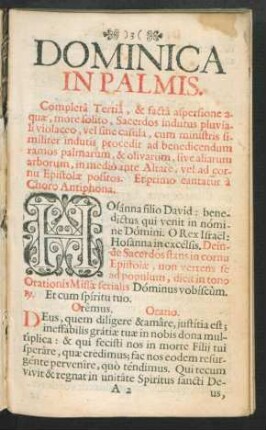 )3(
DOMINICA
IN PALMIS.
Completâ Tertiâ, & factâ aspersione a-
quæ, more solito, Sacerdos indutus pluvia-
li violaceo, vel sine casula, cum ministris si-
militer indutis procedit ad benedicendum
ramos palmarum, & olivarum, sive aliarum
arborum, in medio ante Altare, vel ad cor-
nu Epistolæ positos. Et primo cantatur à
Choro Antiphona.
HOsánna filio David: bene-
díctus qui venit in nómi-
ne Dómini. O Rex Israël:
Hosánna in excélsis. Dein-
de Sacerdos stans in cornu
Epistolæ, non vertens se
ad populum, dicit in tono
Orationis Missæ ferialis Dóminus vobíscum.
℟. Et cum spíritu tuo.
Orémus. Oratio.
DEus, quem dilígere & amáre, justítia est;
ineffábilis grátiæ tuæ in nobis dona mul-
típlica: & qui fecísti nos in morte Fílii tui
speráre, quæ crédimus; fac nos eódem resur-
génte perveníre, quò téndimus. Qui tecum
vivit & regnat in unitáte Spíritus sancti De-
A 2 us,